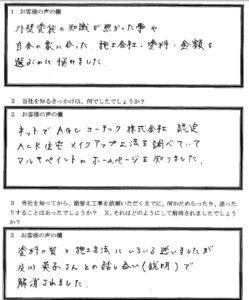 1 お客様の声の欄
外壁塗装の知識が無かった事や
自分の家に合った施工会社・塗料・金額を
選ぶのに悩みました。
2 当社を知るきっかけは、何でしたでしょうか?
2 お客様の声の欄
ネットでAGCコーテック株式会社 認定
ACR住宅メイクアップ工法を調べていて
マルサペイントのホームページを知りました。
3 当社を知ってから、塗替え工事を依頼いただくまでに、何かためらったり、迷った
りすることはあったでしょうか? 又、それはどのようにして解消されましたでしょう
か?
3 お客様の声の欄
塗料の質と施工方法にいろいろ迷いましたが
英子さんとの話し合い(説明)で
解消されました。